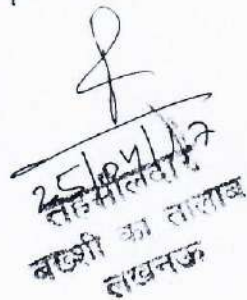 25/04/17
तहसीलदार
बख्शी का तालाब
लखनऊ